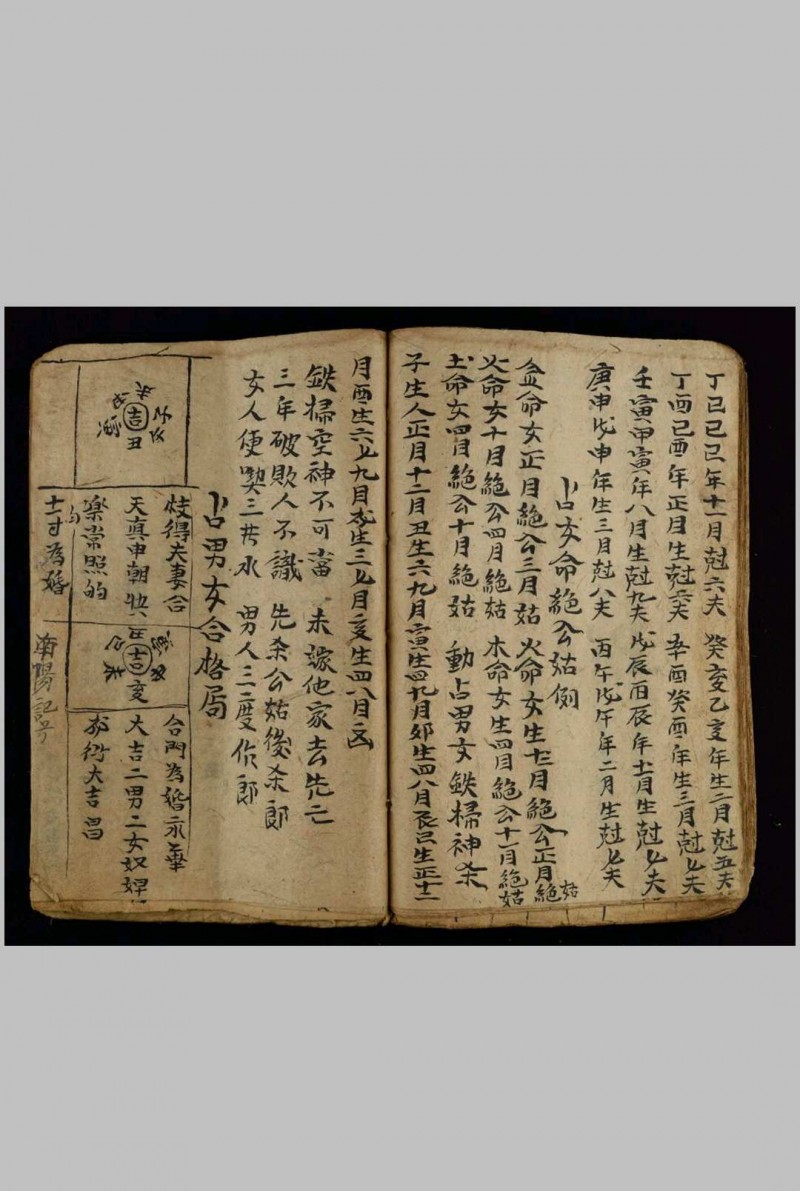 丁巳己巳年十一月尅六夫 癸亥乙亥年生二月尅五夫
丁酉己酉年正月生尅六夫 辛酉癸酉年生三月尅七夫
壬寅甲寅年八月生尅九夫 戊辰丙辰年十一月生尅七夫
庚申戊申年生三月尅八夫 丙午戊午年二月生尅七夫
占女命絕公姑例
金命女正月絕公三月姑 火命女生十二月絕公正月絕姑
火命女十月絕公四月姑 木命女生四月絕公十一月絕姑
土命女四月絕公十月絕姑 動占男女鉄掃神杀
子生人正月十二月丑生六九月寅生四九月卯生四八月辰巳生正十二
月酉生六七九月戌生三七月亥生四八月凶
鉄掃空神不可當 未嫁他家去先亡
三年破敗人不識 先杀公姑後杀郎
女人便喫三井水 男人三度作郎
占男女合格局
吉
丑
子
得夫妻合
天真申朝
楽常照的
為婚
吉
亥
合門為婚永華
大吉二男二女奴婢
大吉昌
南陽記